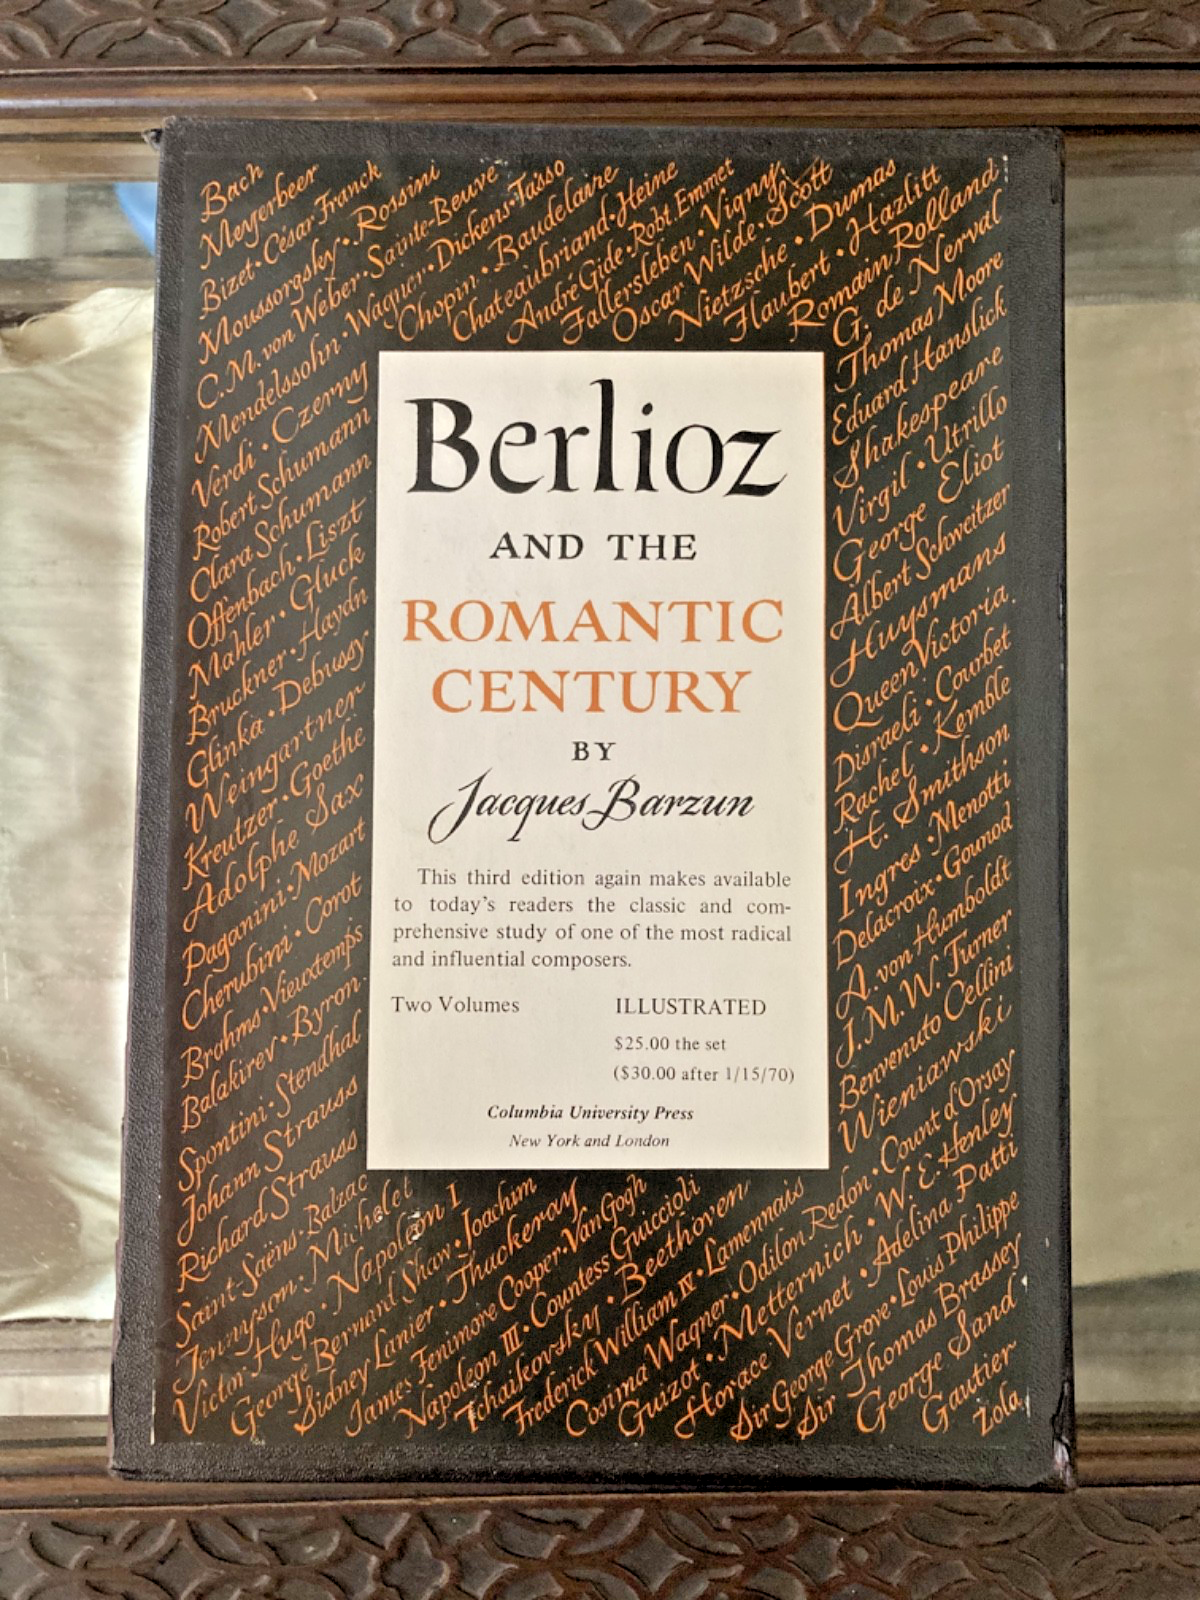 Bach
Meyerbeer
Bizet · César Franck
Moussorgsky · Rossini
C.M. von Weber · Sainte-Beuve
Mendelssohn · Wagner · Dickens · Tasso
Verdi · Czerny
Chopin · Baudelaire
Robert Schumann
Chateaubriand · Heine
Clara Schumann
André Gide · Robt. Emmet
Offenbach · Liszt
Fallersleben · Vigny
Mahler · Gluck
Oscar Wilde · Scott
Bruckner · Haydn
Nietzsche · Dumas
Glinka · Debussy
Flaubert · Hazlitt
Weingartner
Romain Rolland
Kreutzer · Goethe
G. de Nerval
Adolphe Sax
Thomas Moore
Paganini · Mozart
Eduard Hanslick
Cherubini · Corot
Shakespeare
Brahms · Vieuxtemps
Virgil · Utrillo
Balakirev · Byron
George Eliot
Spontini · Stendhal
Albert Schweitzer
Johann Strauss
Huysmans
Richard Strauss
Queen Victoria
Saint-Saëns · Balzac
Disraeli · Courbet
Tennyson · Michelet
Rachel · Kemble
Victor Hugo · Napoleon I
H. Smithson
George Bernard Shaw · Joachim
Ingres · Menotti
Sidney Lanier · Thackeray
Delacroix · Gounod
James Fenimore Cooper · Van Gogh
A. von Humboldt
Napoleon III · Countess Guiccioli
J.M.W. Turner
Tchaikovsky · Beethoven
Benvenuto Cellini
Frederick William IV · Lamennais
Wieniawski
Cosima Wagner · Odilon Redon · Count d'Orsay
Guizot · Metternich · W. E. Henley
Horace Vernet · Adelina Patti
Sir George Grove · Louis Philippe
Sir Thomas Brassey
George Sand
Gautier
Zola
Berlioz
AND THE
ROMANTIC
CENTURY
BY
Jacques Barzun
This third edition again makes available
to today's readers the classic and com-
prehensive study of one of the most radical
and influential composers.
Two Volumes ILLUSTRATED
$25.00 the set
($30.00 after 1/15/70)
Columbia University Press
New York and London